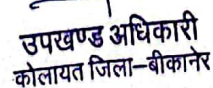 उपखण्ड अधिकारी
कोलायत जिला–बीकानेर